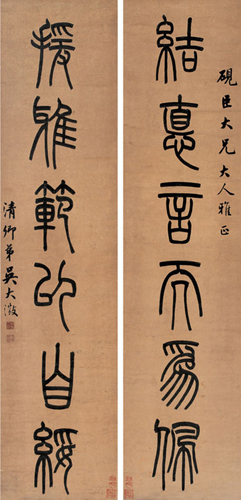 硯臣大兄大人雅正
結悳言而爲佩
援雅範以自綏
清卿弟吳大澂